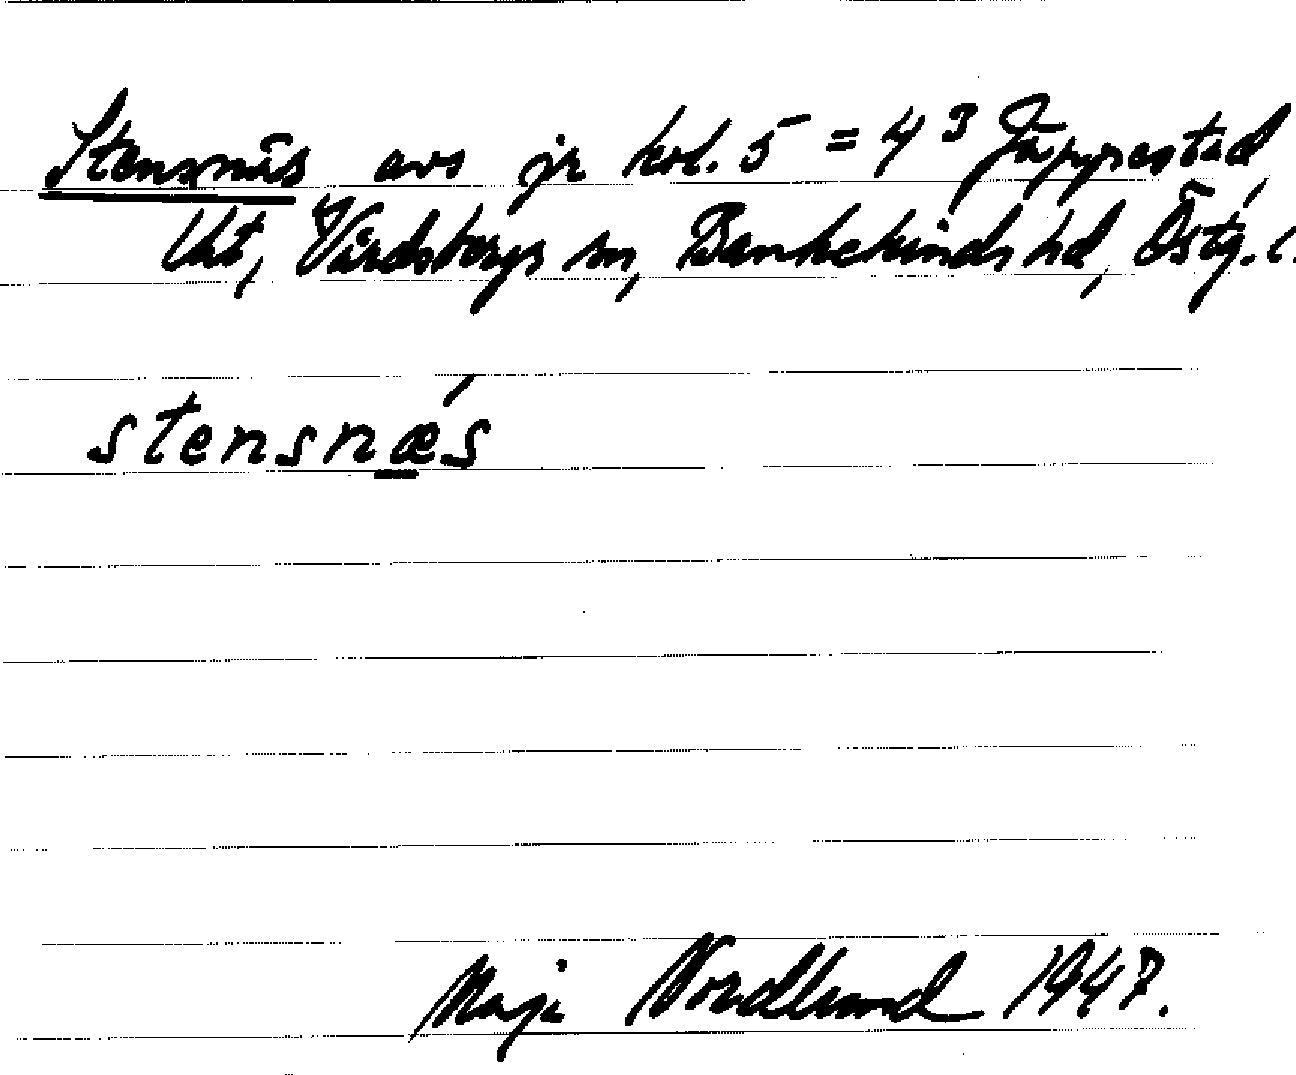 Stensnäs avs jr kol. 5 = 4³ Jäppestad
Utt, Vårdsbergs sn, Bankekinds hd, Östg. l.
stensnǽs
Maji Nordlund 1947.